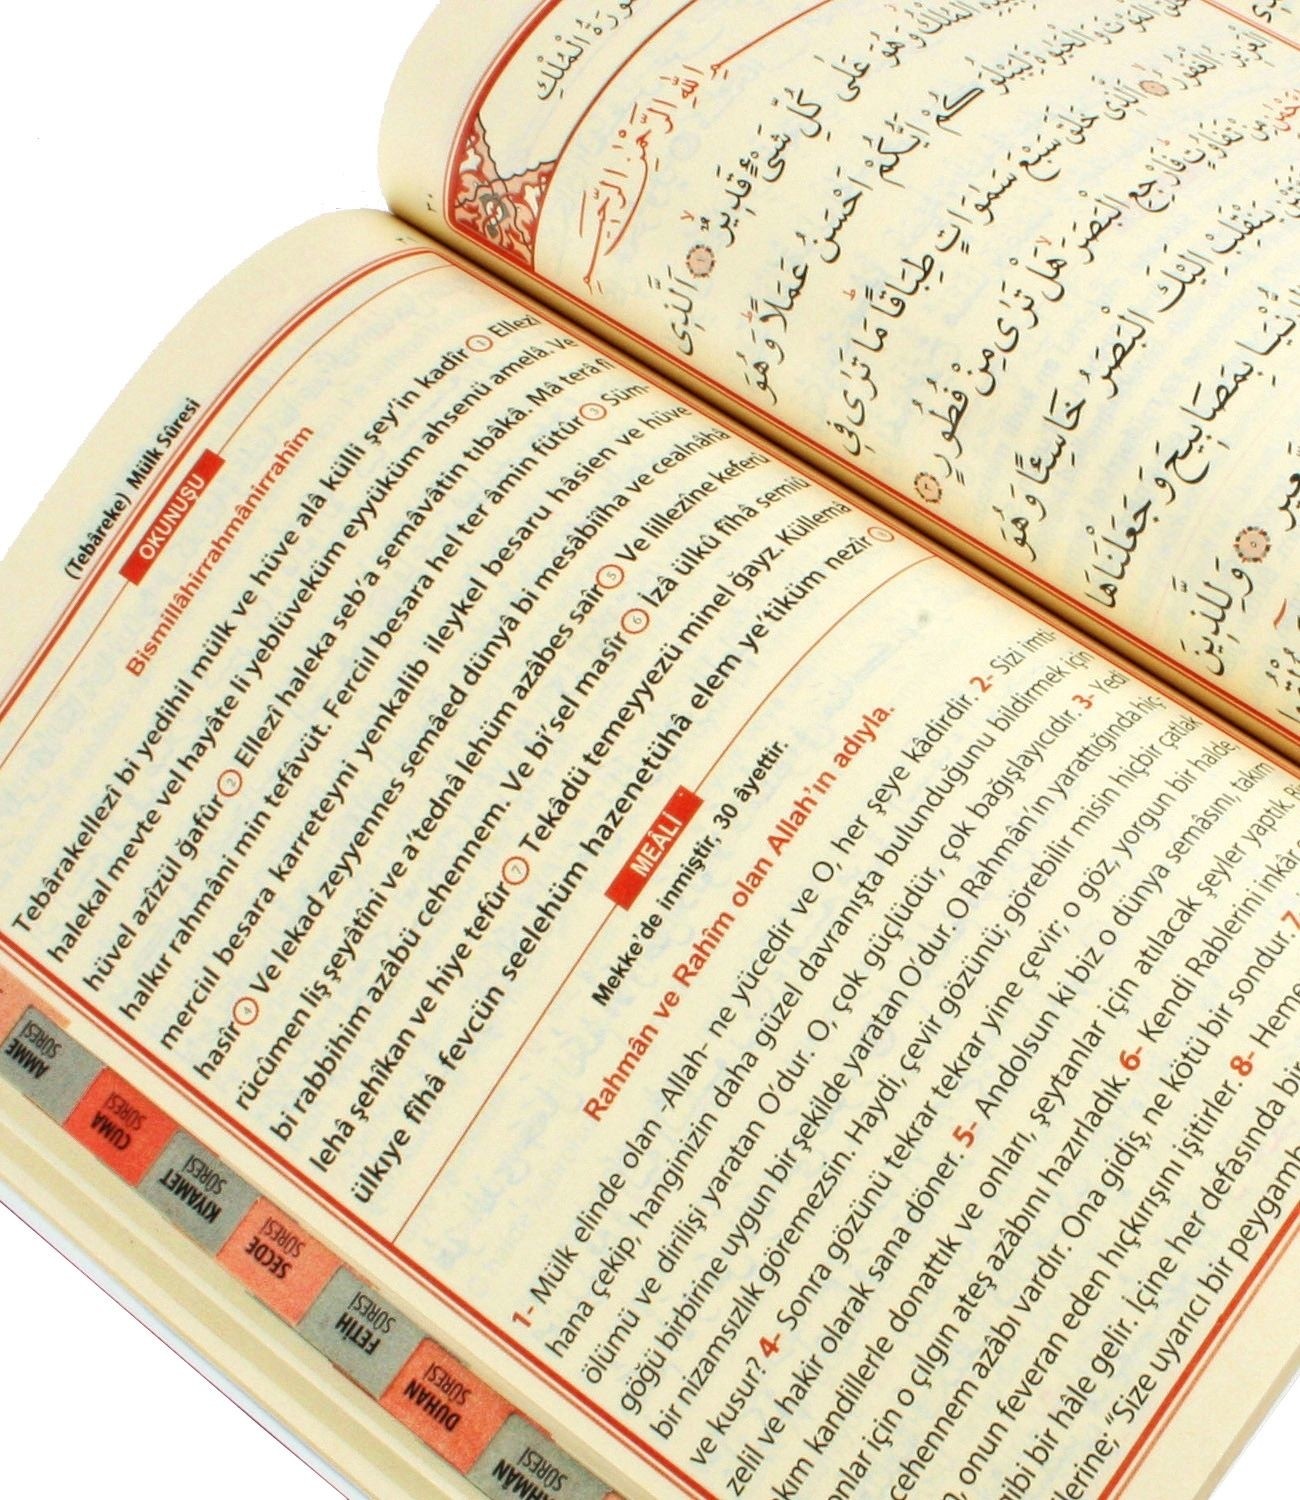 (Tebâreke) Mülk Sûresi
OKUNUŞU
Bismillâhirrahmânirrahîm
Tebârakellezî bi yedihil mülk ve hüve alâ külli şey'in kadîr 1 Ellezî
halekal mevte vel hayâte li yeblüveküm eyyüküm ahsenü amelâ. Ve
hüvel azîzül ğafûr 2 Ellezî haleka seb'a semâvâtin tıbâkâ. Mâ terâ fî
halkır rahmâni min tefâvüt. Ferciıl besara hel ter âmin fütür 3 Süm-
merciıl besara karreteyni yenkalib ileykel besaru hâsien ve hüve
hasîr 4 Ve lekad zeyyennes semâed dünyâ bi mesâbîiha ve cealnâhâ
rücûmen liş şeyâtîni ve a'tednâ lehüm azâbes saîr 5 Ve lillezîne keferû
bi rabbihim azâbü cehennem. Ve bi'sel masîr 6 İzâ ülkû fîhâ semiû
lehâ şehîkan ve hiye tefûr 7 Tekâdü temeyyezü minel ğayz. Küllemâ
ülkıye fîhâ fevcün seelehüm hazenetühâ elem ye'tiküm nezîr 8
MEÂLİ
Mekke'de inmiştir, 30 âyettir.
Rahmân ve Rahîm olan Allah'ın adıyla.
1- Mülk elinde olan -Allah- ne yücedir ve O, her şeye kâdirdir. 2- Sizi imti-
hana çekip, hanginizin daha güzel davranışta bulunduğunu bildirmek için
ölümü ve dirilişi yaratan O'dur. O, çok güçlüdür, çok bağışlayıcıdır. 3- Yedi
göğü birbirine uygun bir şekilde yaratan O'dur. O Rahmân'ın yarattığında hiç-
bir nizamsızlık göremezsin. Haydi, çevir gözünü; görebilir misin hiçbir çatlak
ve kusur? 4- Sonra gözünü tekrar tekrar yine çevir; o göz, yorgun bir halde,
zelil ve hakir olarak sana döner. 5- Andolsun ki biz o dünya semâsını, takım
kım kandillerle donattık ve onları, şeytanlar için atılacak şeyler yaptık.
onlar için o çılgın ateş azabını hazırladık. 6- Kendi Rablerini inkâr
cehennem azâbı vardır. Ona gidiş, ne kötü bir sondur. 7
onun feveran eden hıçkırışını işitirler. 8- Heme
gibi bir hâle gelir. İçine her defasında bir
lerine; "Size uyarıcı bir peygamb
AMME SÛRESİ
CUMA SÛRESİ
KIYAMET SÛRESİ
SECDE SÛRESİ
FETİH SÛRESİ
DUHAN SÛRESİ
HMAN SÛRESİ
سُورَةُ الْمُلْكِ
بِسْمِ اللّٰهِ الرَّحْمٰنِ الرَّحِيمِ
الْمُلْكُ وَهُوَ عَلٰى كُلِّ شَيْءٍ قَدِيرٌ ١ اَلَّذِى
الْمَوْتَ وَالْحَيٰوةَ لِيَبْلُوَكُمْ اَيُّكُمْ اَحْسَنُ عَمَلًا وَهُوَ
الْعَزِيزُ الْغَفُورُ ٢ اَلَّذِى خَلَقَ سَبْعَ سَمٰوَاتٍ طِبَاقًا مَا تَرٰى فِى
مِنْ تَفَاوُتٍ فَارْجِعِ الْبَصَرَ هَلْ تَرٰى مِنْ فُطُورٍ ٣
يَنْقَلِبْ اِلَيْكَ الْبَصَرُ خَاسِئًا وَهُوَ
الدُّنْيَا بِمَصَابِيحَ وَجَعَلْنَاهَا
السَّعِيرِ ٥ وَلِلَّذِينَ